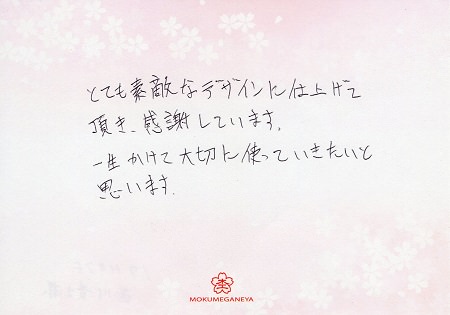 とても素敵なデザインに仕上げて
頂き、感謝しています。
一生かけて大切に使っていきたいと
思います。
MOKUMEGANEYA